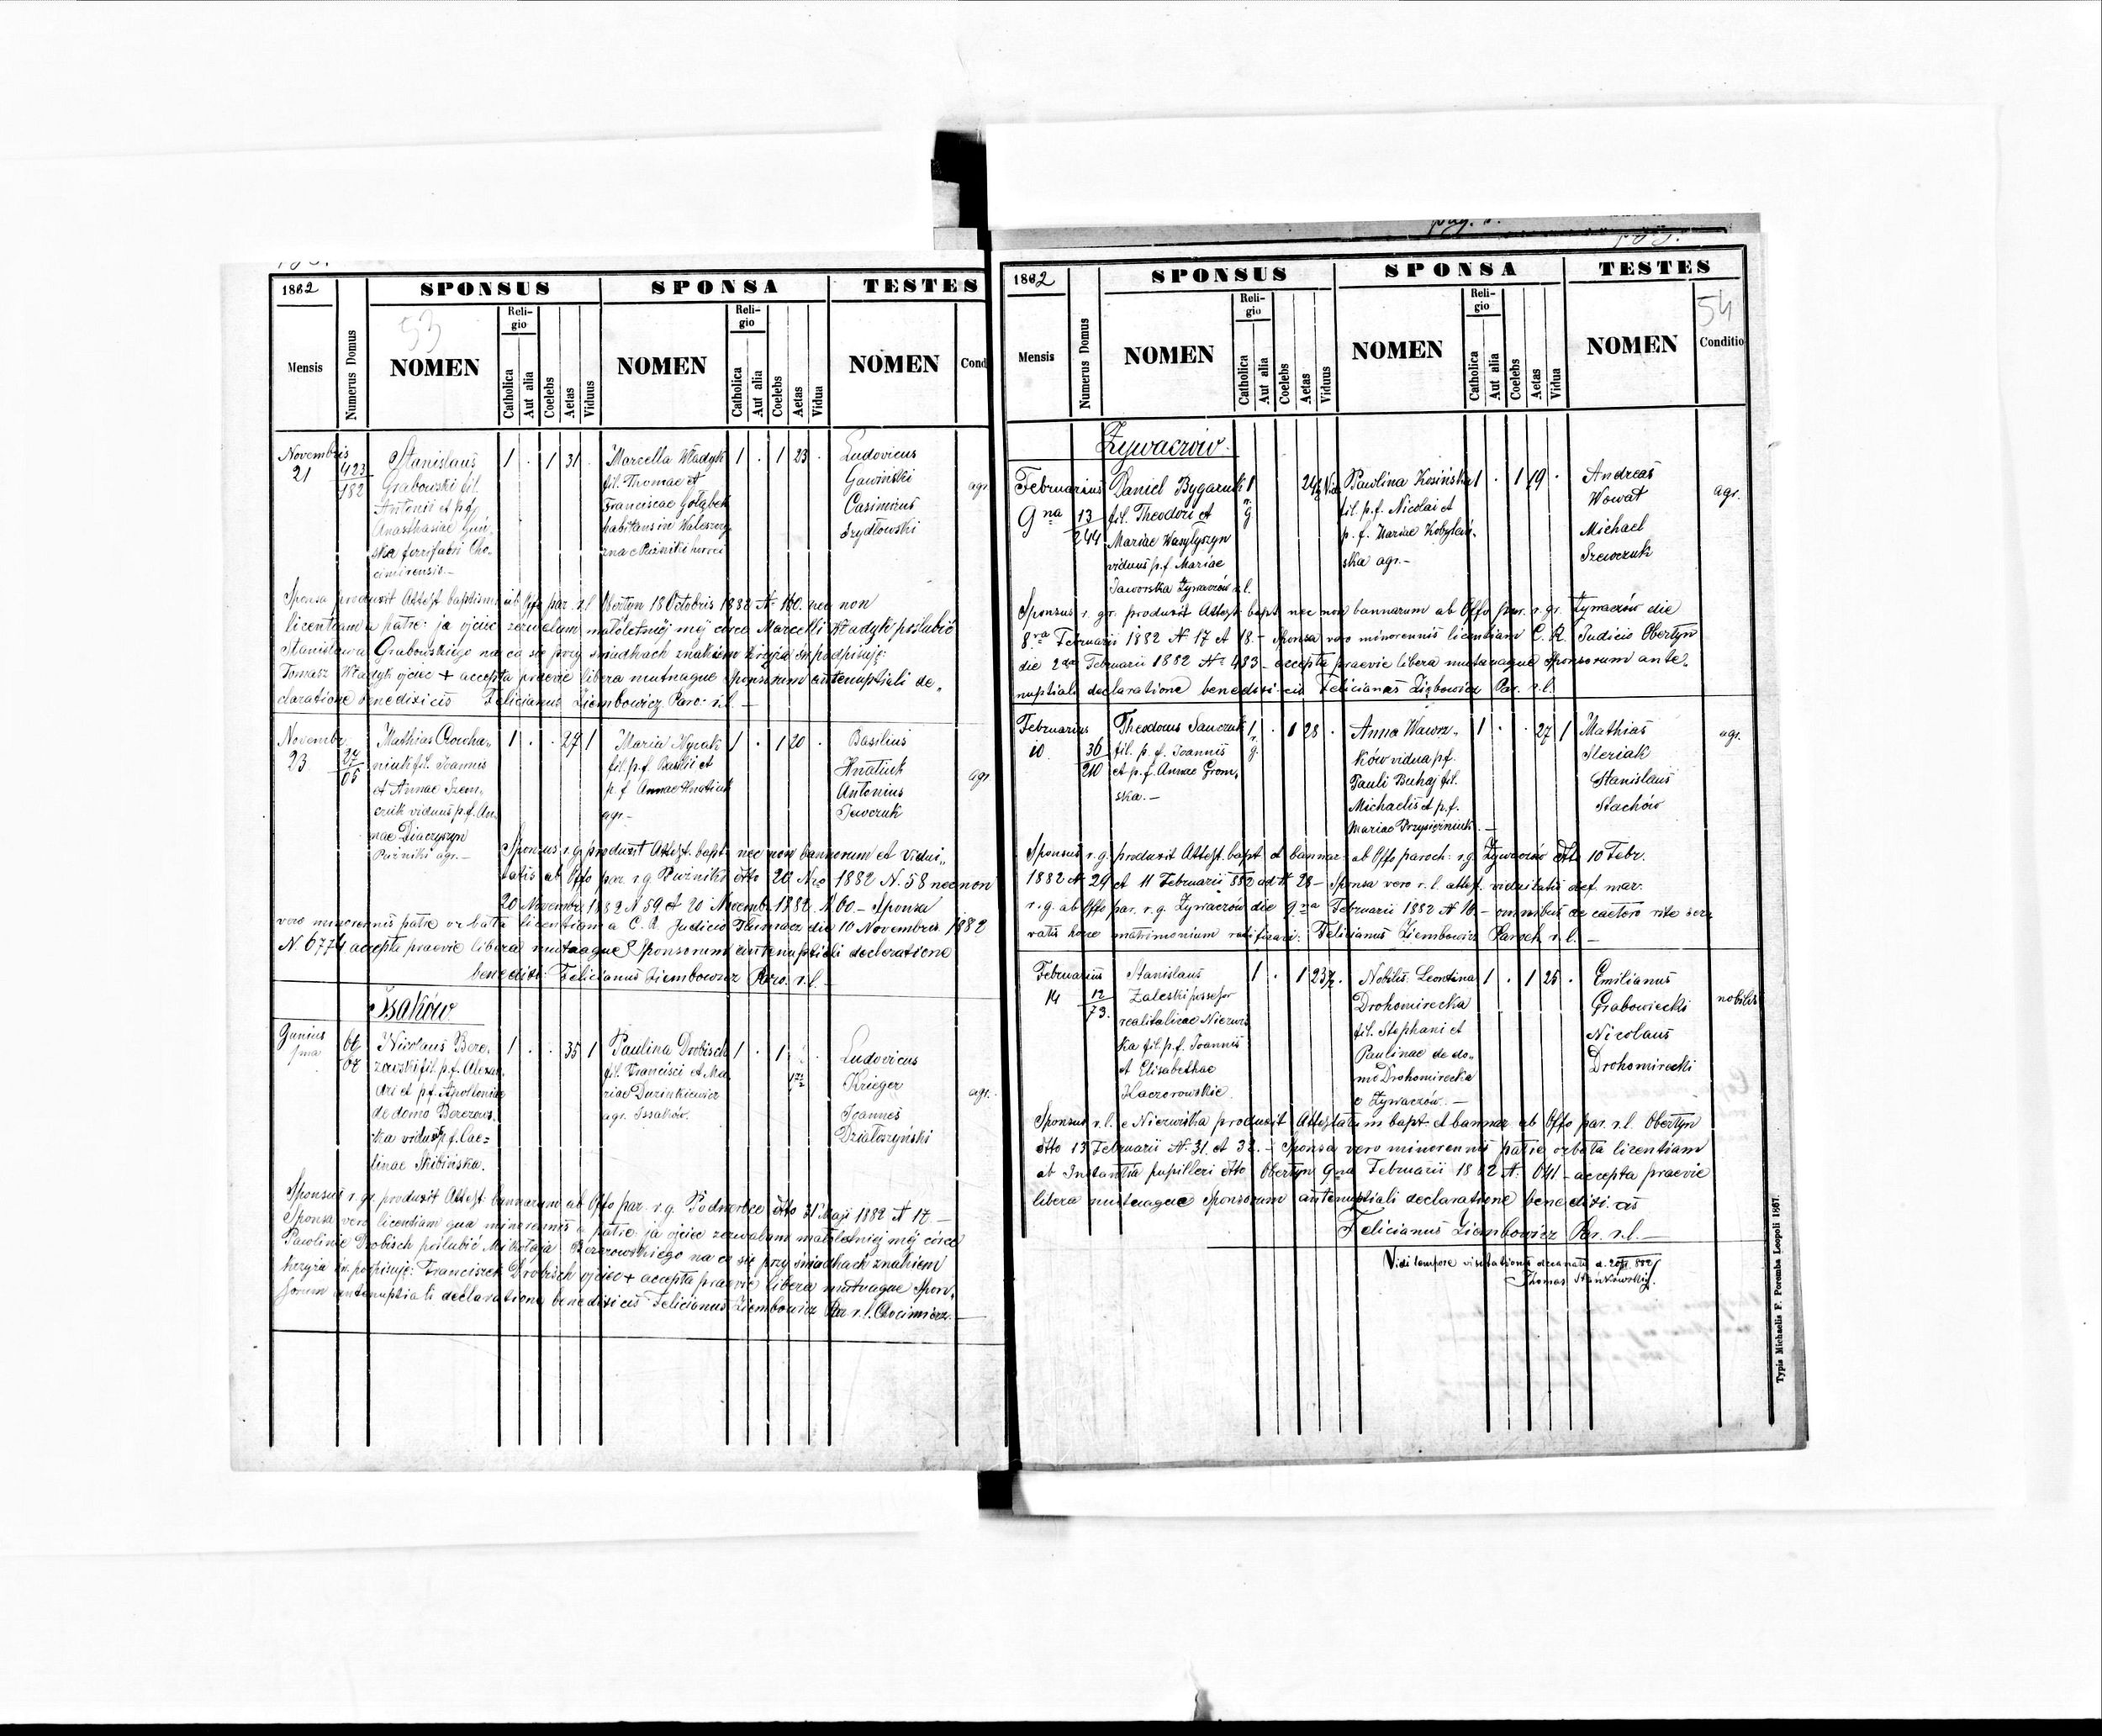 1882
SPONSUS
SPONSA
TESTES
Mensis
Numerus Domus
53
NOMEN
Reli-
gio
Catholica
Aut alia
Coelebs
Aetas
Viduus
NOMEN
Reli-
gio
Catholica
Aut alia
Coelebs
Aetas
Vidua
NOMEN
Cond
Novembris 21
423/182
Stanislaus
Grabowski fil.
Antonii et p.f.
Anasthasiae
ska ferrifabri Cho-
cimirensis.-
1 . 1 31 .
Marcella Władyk
fil. Thomae et
Franciscae Gołąbek
habitans in
1 . 1 23 .
Ludovicus
Gawiński
Casimirus
Szydłowski
agr.
Sponsa produxit Attest baptismi ab Offo par. r.l. Obertyn 18 Octobris 1882 N. 160. nec non
licentiam a patre: ja ojciec zezwalam małoletniéj méj córce Marceli Władyk poślubić
Stanisława Grabowskiego na co się przy świadkach znakiem krzyża św. podpisuję:
Tomasz Władyk ojciec + accepta praevie libera mutuaque sponsorum antenuptiali de„
claratione benedixi cis Felicianus Ziembowicz Paro: r.l. —
Novembr. 23
27/65
Mathias Chowha„
niuk fil. Joannis
et Annae Szew„
czuk viduus p.f. An„
nae Diaczyszyn
Puźniki agr.—
1 . . 27 1
Maria Nyrak
fil. p.f. Basilii et
p.f. Annae Hnatiuk
agr.—
1 . 1 20 .
Basilius
Hnatiuk
Antonius
Jewczuk
agr.
Sponsus r.g. produxit Attest. bapt. nec non bannorum et vidui„
tatis ab Offo par. r.g. Puźniki dtto 20 Nro 1882 N. 58 nec non
20 Novembr. 1882 N 59. et 20 Novembr. 1882. N 60. — Sponsa
vero minorennis patre orbata licentiam a C. R. Judicio Tłumacz die 10 Novembris 1882
N 6774 accepta praevie libera mutuaque Sponsorum antenuptiali declaratione
benedixi: Felicianus Ziembowicz Paro. r.l. —
Isaków
Junius 1ma
66/67
Nicolaus Bere„
zowski fil. p.f. Alexan„
dri et p.f. Apolloniae
de domo Berezows„
ka viduus p.f. Cae=
linae Skibińska.
1 . . 35 1
Paulina Drobisch
fil. Francisci et Ma„
riae Duzinkiewicz
agr. Issaków.
1 . 1
Ludovicus
Krieger
Joannes
Działoszyński
agr.
Sponsus r.gr. produxit Attest. bannorum ab Offo par. r.g. Podwerbce dtto 31 Maji 1882 N 17 —
Sponsa vero licentiam qua minorennis a patre: ja ojciec zezwalam małoletniéj méj córce
Pawlinie Drobisch poślubić Mikołaja Berezowskiego na co się przy świadkach znakiem
krzyża św. podpisuję: Franciszek Drobisch ojciec + accepta praevie libera mutuaque Spon„
sorum antenuptiali declaratione benedixi cis Felicianus Ziembowicz Par r.l. Chocimierz. —
1882
SPONSUS
SPONSA
TESTES
Mensis
Numerus Domus
NOMEN
Reli-
gio
Catholica
Aut alia
Coelebs
Aetas
Viduus
NOMEN
Reli-
gio
Catholica
Aut alia
Coelebs
Aetas
Vidua
NOMEN
54
Conditio
Żywaczów.
Februarius 9na
13/244
Daniel Bygaruk
fil. Theodori et
Mariae Wasylyszyn
viduus p.f. Mariae
Jaworska Żywaczów r.l.
1 r. g. 24½ Vid.
Pawlina Kosińska
fil. p.f. Nicolai et
p.f. Mariae Kobyleń„
ska agr.—
1 . 1 19 .
Andreas
Wowat
Michael
Szewczuk
agr.
Sponsus r. gr. produxit Attest. bapt. nec non bannorum ab Offo par. r. gr. Żywaczów die
8va Februarii 1882 N. 17 et 18. — Sponsa vero minorennis licentiam C. R. Judicio Obertyn
die 2da Februarii 1882 N. 483 — accepta praevie libera mutuaque Sponsorum ante„
nuptiali declaratione benedixi cis Felicianus Ziembowicz Par. r.l.
Februarius 10
36/210
Theodorus Sauczuk
fil. p.f. Joannis
et p.f. Annae Grom„
ska.—
1 r. g. . 1 28 .
Anna Wawrz„
ków vidua p.f.
Pauli Buhaj fil.
Michaelis et p.f.
Mariae Przysiężniuk. —
1 . . 27 1
Mathias
Steriak
Stanislaus
Stachów
agr.
Sponsus r.g. produxit Attest. bapt. et bannor. ab Offo paroch: r.g. Żywaczów dtto 10 Febr.
1882 N. 29 et 11 Februarii 882 ad N 28 — Sponsa vero r.l. attest. viduitatis def. mar.
r.g. ab Offo par. r.g. Żywaczów die 9na Februarii 1882 N 16. — omnibus de caetero rite ser„
vatis hocce matrimonium ratificavi: Felicianus Ziembowicz Paroch r.l. —
Februarius 14
12/73.
Stanislaus
Zaleski possesor
realitaticae Niezwis
ka fil. p.f. Joannis
et Elisabethae
Kaczorowskie.
1 . 1 23½ .
Nobilis Leontina
Drohomirecka
fil. Stephani et
Paulinae de do„
mo Drohomirecka
e Żywaczów. —
1 . 1 26 .
Emilianus
Grabowiecki
Nicolaus
Drohomirecki
nobiles
Sponsus r.l. e Niezwiska produxit Attestatum bapt. et bannor. ab Offo par. r.l. Obertyn
dtto 13 Februarii N. 31. et 32. — Sponsa vero minorennis patre orbata licentiam
ab Instantia pupilleri dtto Obertyn 9na Februarii 1882 N. 641 — accepta praevie
libera mutuaque Sponsorum antenuptiali declaratione benedixi cis
Felicianus Ziembowicz Par. r.l. —
Vidi tempore visitationis decanatus d. 20/VI. 882
Thomas Stańkowski
Typis Michaelis F. Poremba Leopoli 1867.